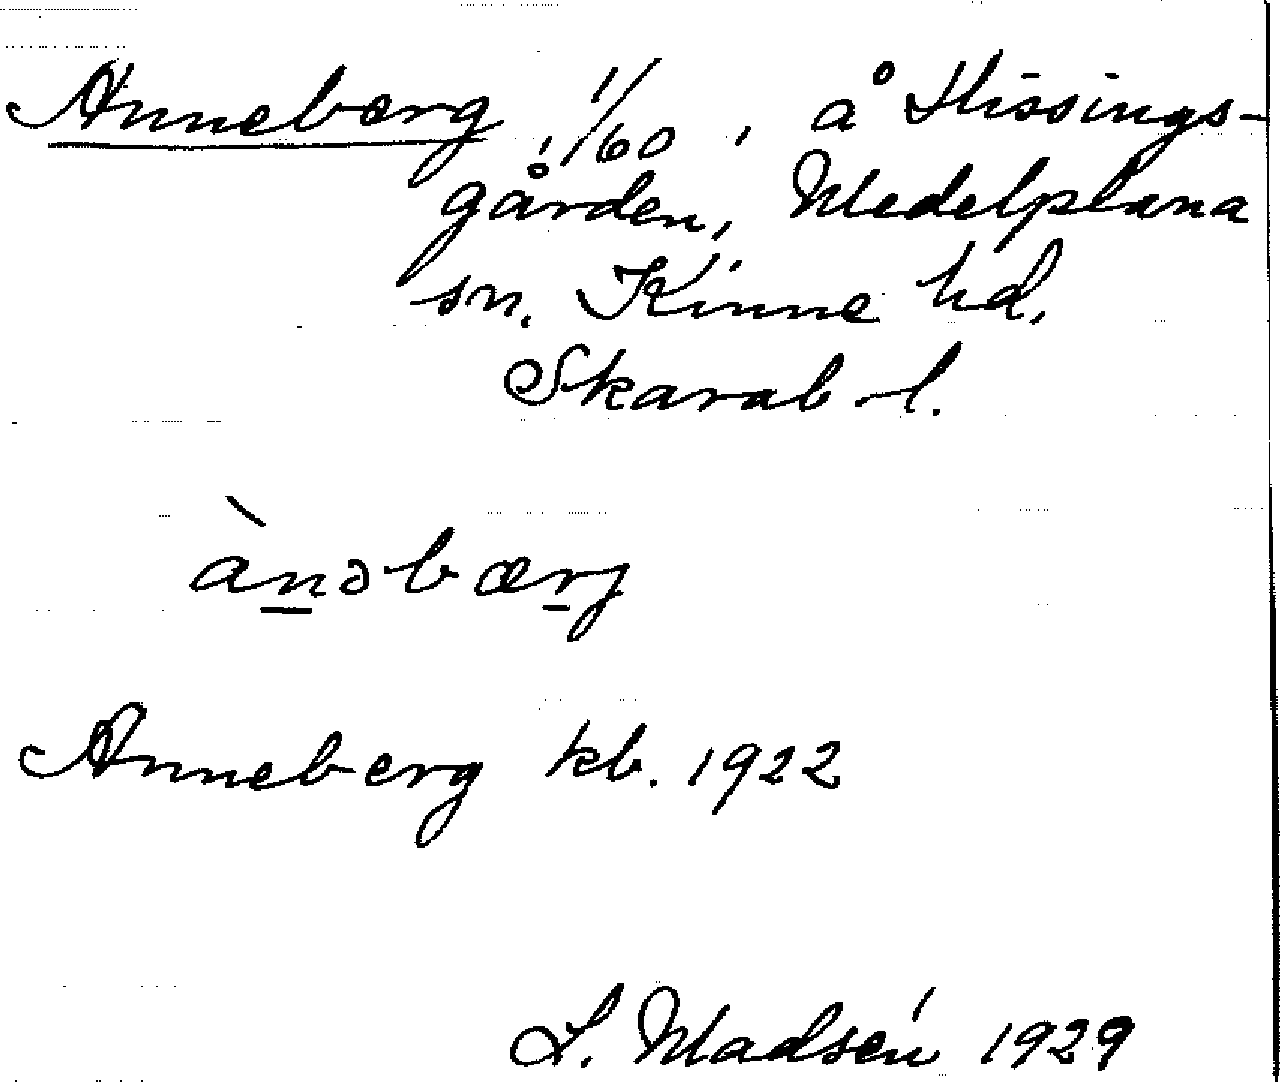 Anneberg, 1/60, å Hissings-
gården, Medelplana
sn. Kinne hd,
Skarab. l.
ànəbærj
Anneberg kb. 1922
L. Madsén 1929